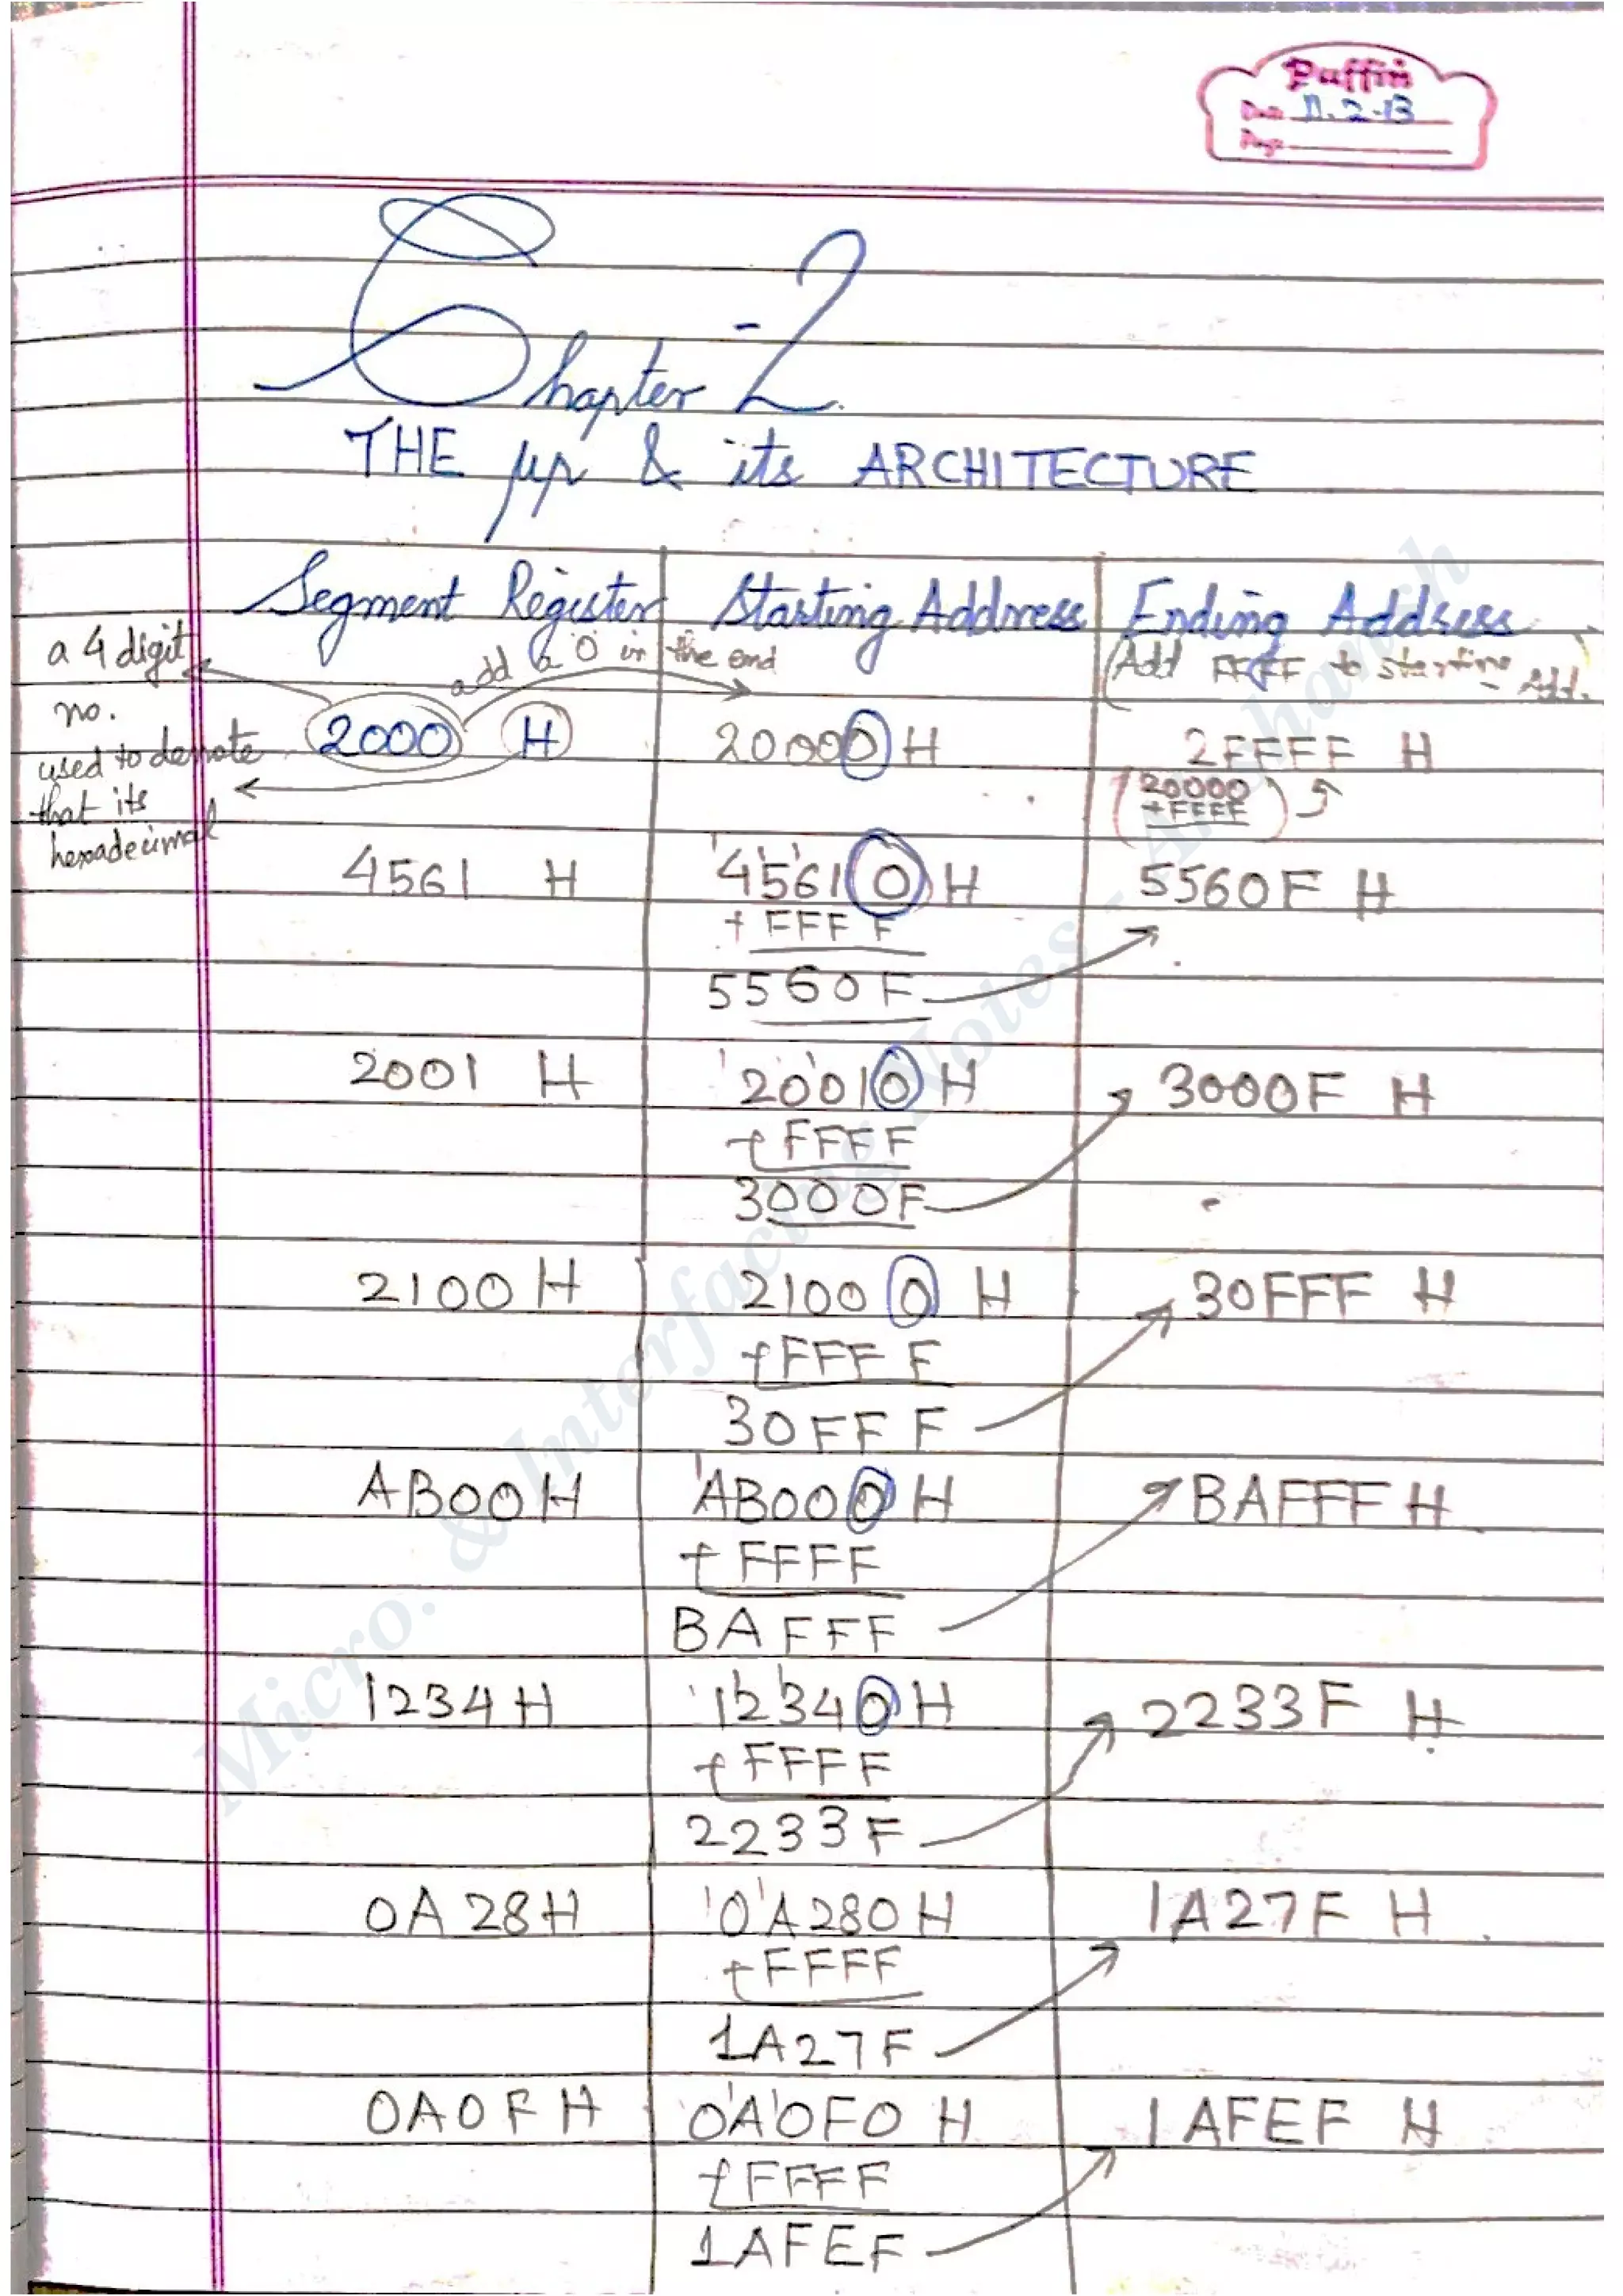 Puffin
Date 11.2.13
Page
Chapter-2
THE μp & its ARCHITECTURE
Segment Register Starting Address Ending Address
(Add FFFF to starting Add.)
a 4 digit no.
add a 0 in the end
2000 H 20000 H 2FFFF H
used to denote that its hexadecimal
(20000
+FFFF)
4561 H 45610 H 5560F H
+ FFFF
5560F
2001 H 20010 H 3000F H
+ FFFF
3000F
2100 H 21000 H 30FFF H
+FFFF
30FFF
AB00H AB000 H BAFFF H
+ FFFF
BAFFF
1234H 12340 H 2233F H
+ FFFF
2233F
0A28H 0A280 H 1A27F H
+ FFFF
1A27F
0A0FH 0A0F0 H 1AFEF H
+ FFFF
1AFEF
Micro. & Interfacing Notes -